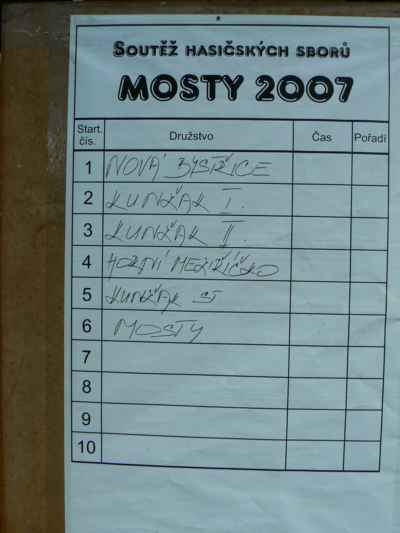 Soutěž hasičských sborů
MOSTY 2007
Start. čís. Družstvo Čas Pořadí
1 NOVÁ BYSTŘICE
2 KUNŽAK I.
3 KUNŽAK II.
4 HORNÍ MEZIŘÍČKO
5 KUNŽAK ST
6 MOSTY
7
8
9
10